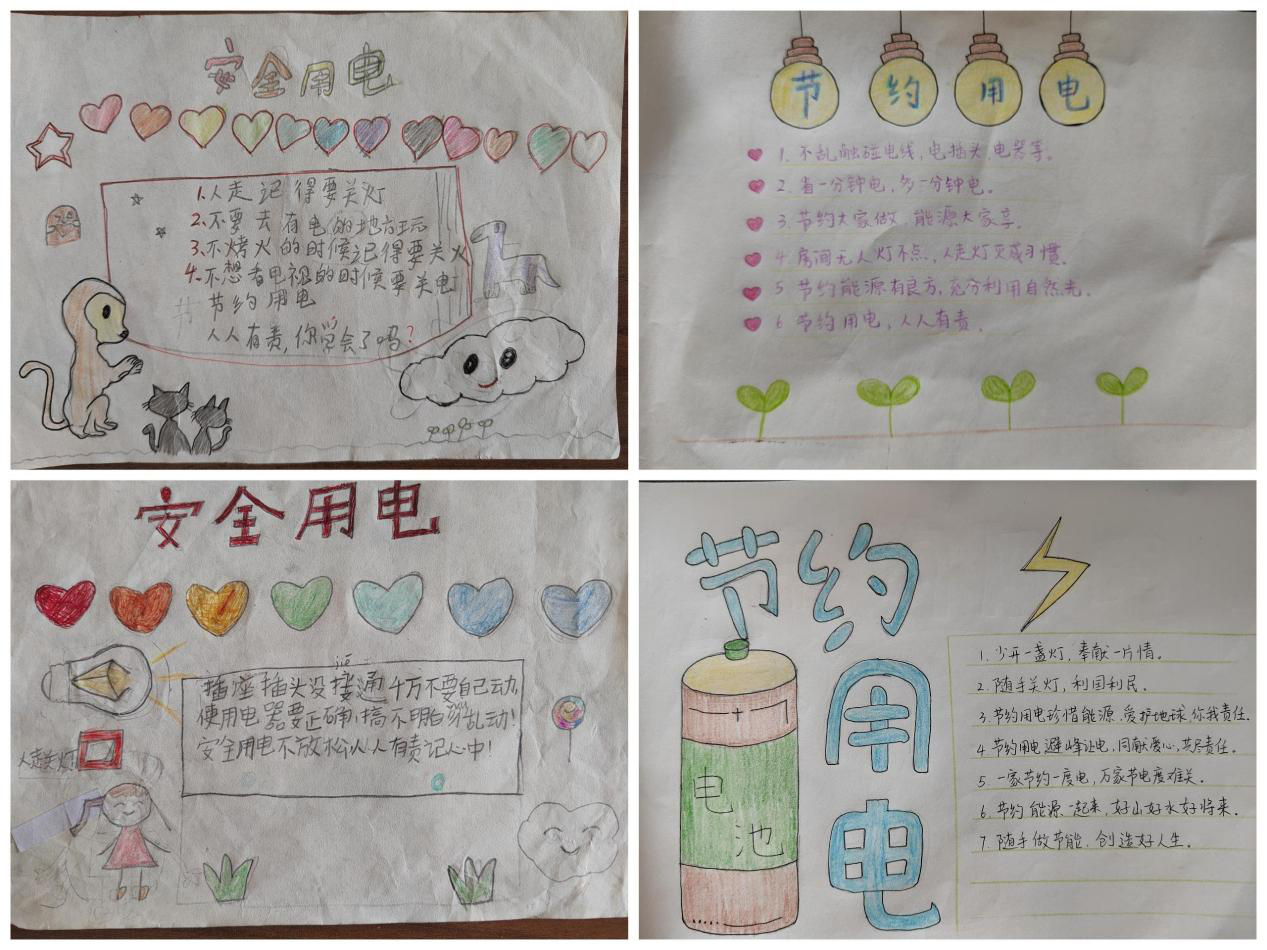 安全用电
1.人走记得要关灯
2.不要去有电的地方玩
3.不烤火的时候记得要关火
4.不想看电视的时候要关电
节约用电
人人有责,你学会了吗?
节约用电
1.不乱触碰电线,电插头,电器等。
2.省一分钟电,多一分钟电。
3.节约大家做,能源大家享。
4.房间无人灯不点,人走灯灭成习惯。
5.节约能源有良方,充分利用自然光。
6.节约用电,人人有责。
安全用电
插座插头没接通千万不要自己动,
使用电器要正确,搞不明白别乱动!
安全用电不放松人人有责记心中!
人走关灯
节约用电
电池
1.少开一盏灯,奉献一片情。
2.随手关灯,利国利民。
3.节约用电珍惜能源,爱护地球,你我责任.
4.节约用电避峰让电,同献爱心,共尽责任。
5.一家节约一度电,万家节电度难关。
6.节约能源一起来,好山好水好将来.
7.随手做节能,创造好人生。